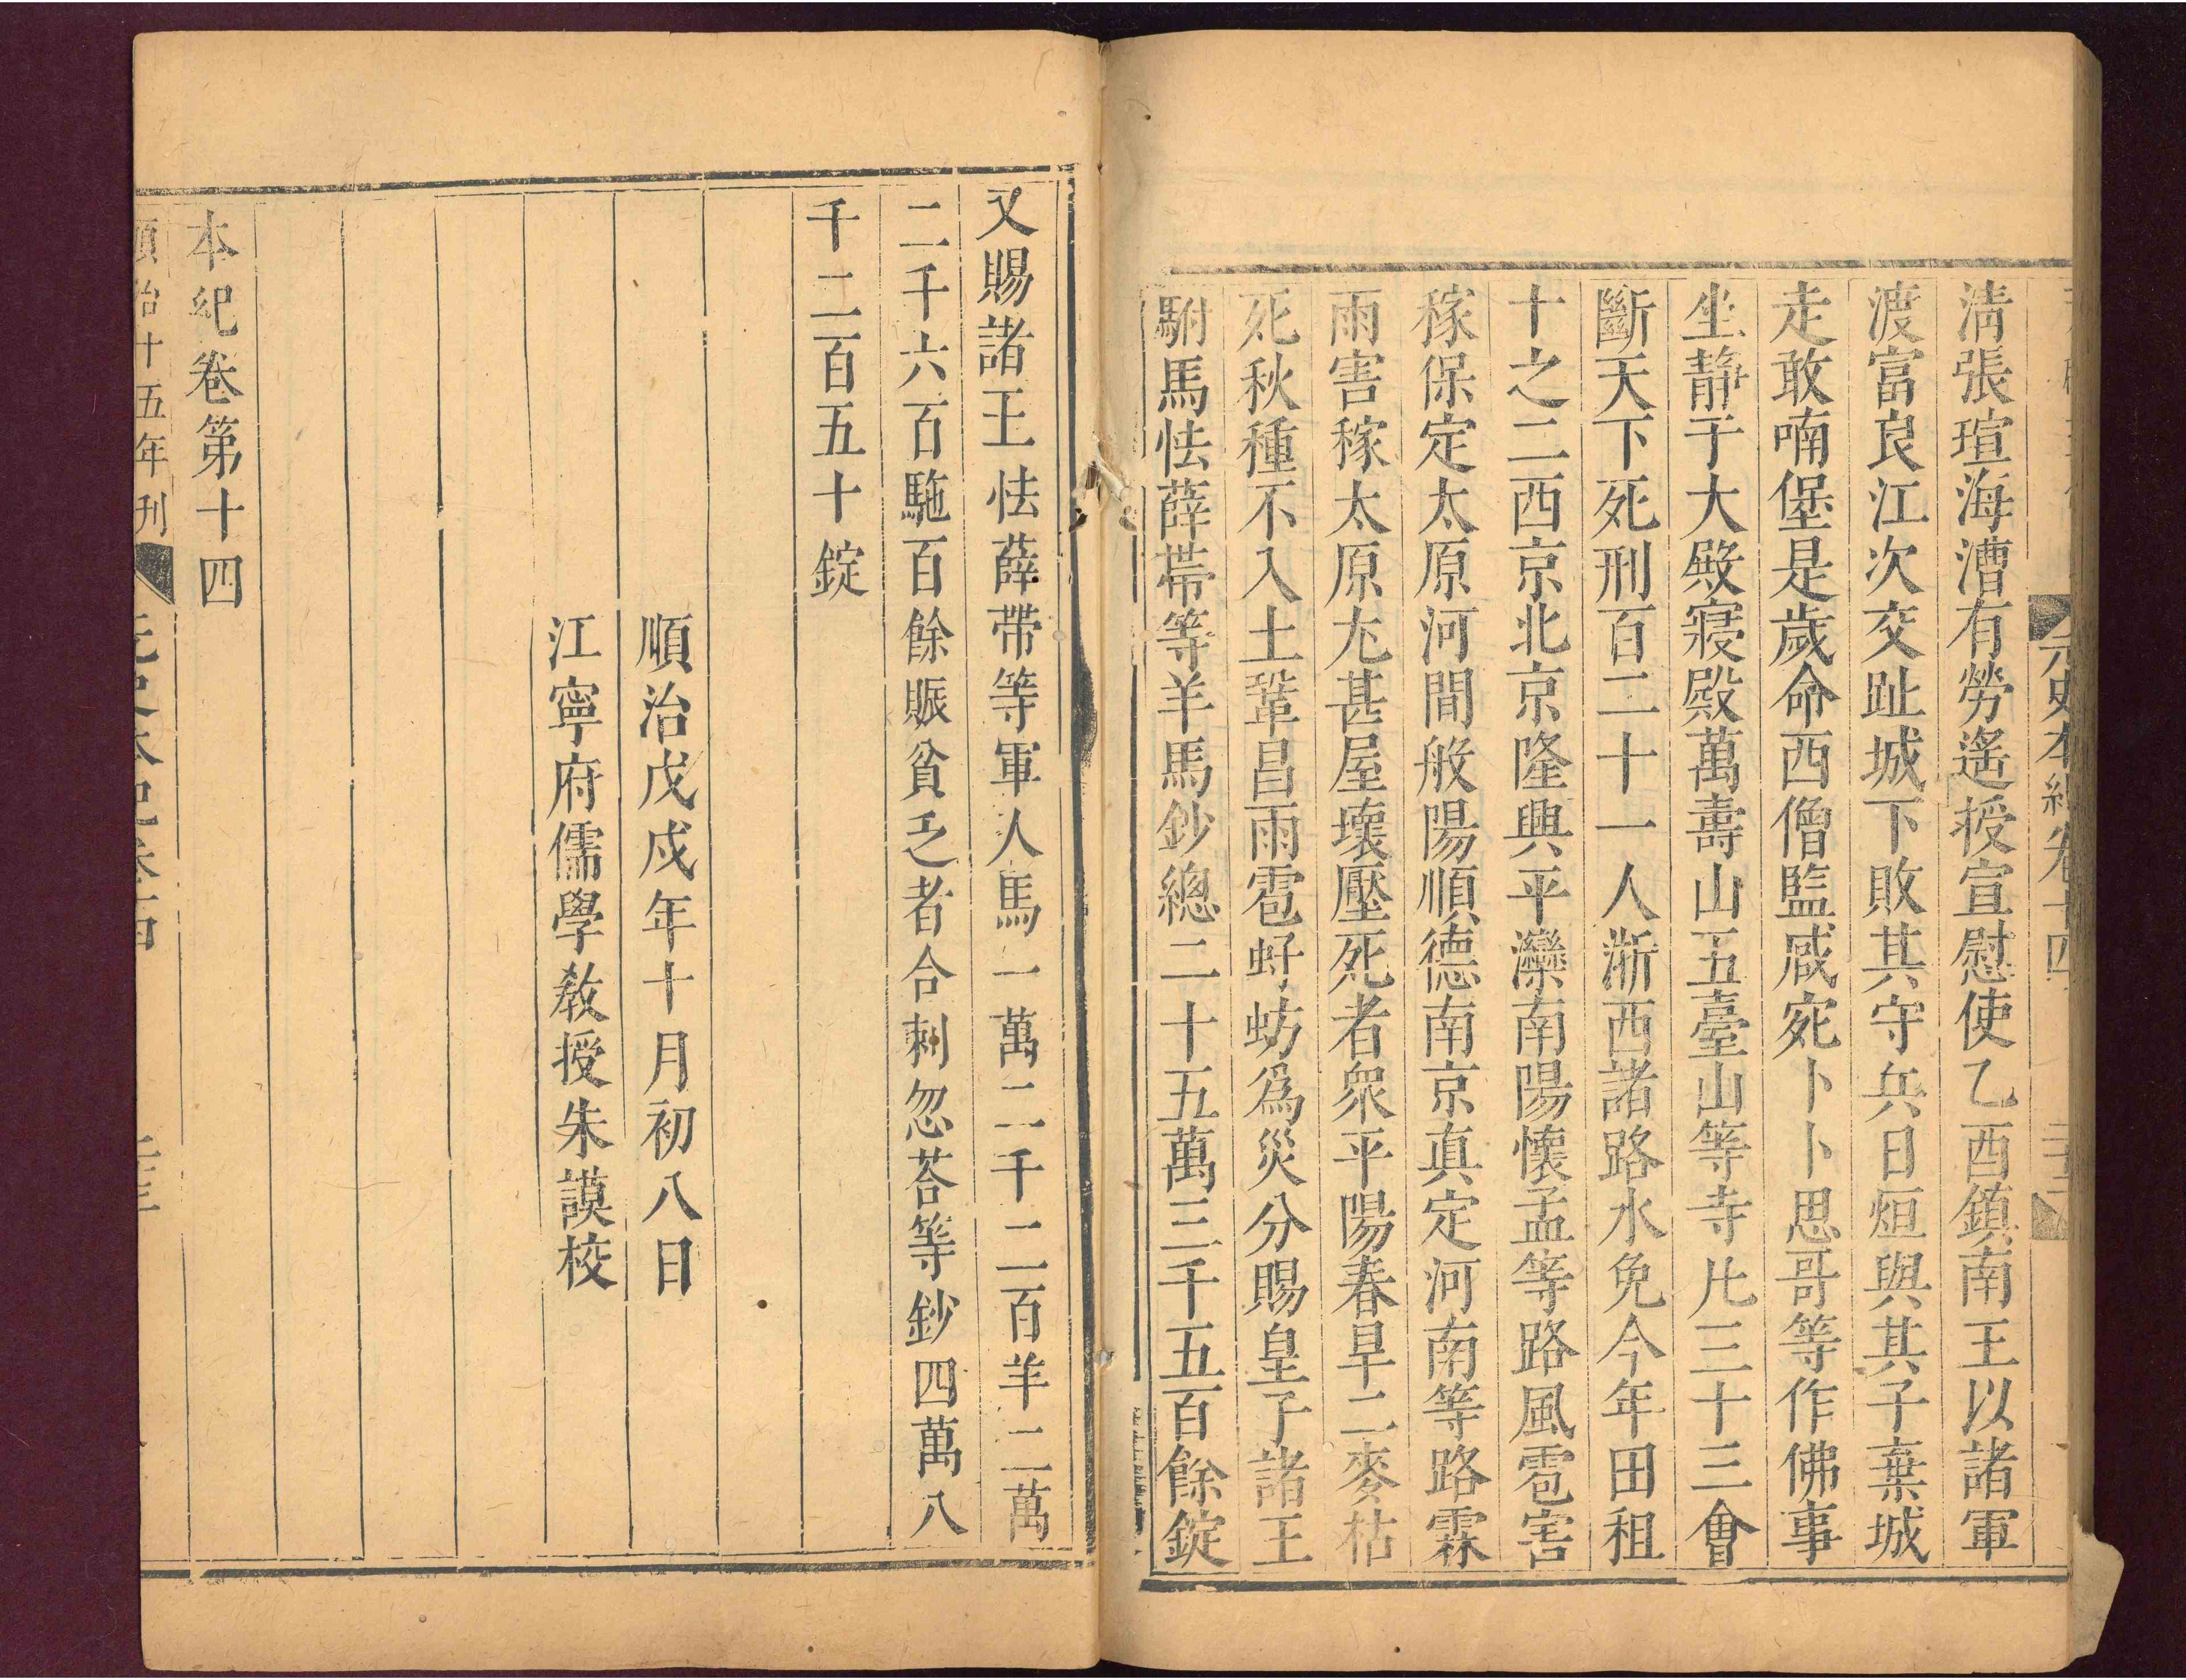 元史本紀卷十四
清張瑄海漕有勞遙授宣慰使乙酉鎮南王以諸軍
渡富良江次交趾城下敗其守兵日烜與其子棄城
走敢喃堡是歲命西僧監臧宛卜卜思哥等作佛事
坐静于大殿寢殿萬壽山五臺山等寺凡三十三會
斷天下死刑百二十一人浙西諸路水免今年田租
十之二西京北京隆興平灤南陽懷孟等路風雹害
稼保定太原河間般陽順德南京真定河南等路霖
雨害稼太原尤甚屋壞壓死者衆平陽春旱二麥枯
死秋種不入土鞏昌雨雹虸蚄為災分賜皇子諸王
駙馬怯薛帶等羊馬鈔總二十五萬三千五百餘錠
又賜諸王怯薛帶等軍人馬一萬二千二百羊二萬
二千六百駞百餘賑貧乏者合剌忽荅等鈔四萬八
千二百五十錠
順治戊戌年十月初八日
江寧府儒學教授朱謨校
本紀卷第十四
順治十五年刊
元史本紀卷十四